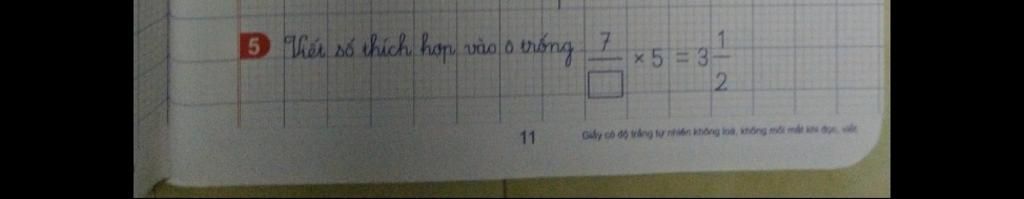 5 Viết số thích hợp vào ô trống 7/□ × 5 = 3 1/2
11 Giấy có độ trắng tự nhiên không loá, không mỏi mắt khi đọc, viết